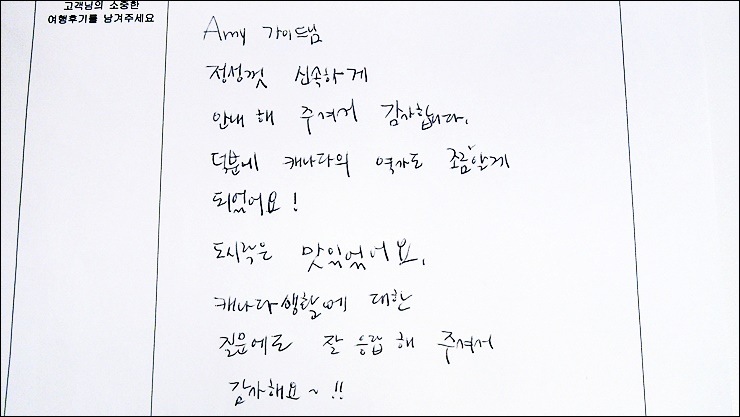 고객님의 소중한
여행후기를 남겨주세요
Amy 가이드님
정성껏 신속하게
안내 해 주셔서 감사합니다.
덕분에 캐나다의 역사도 조금 알게
되었어요!
도시락은 맛있었어요,
캐나다생활에 대한
질문에도 잘 응답 해 주셔서
감사해요~!!